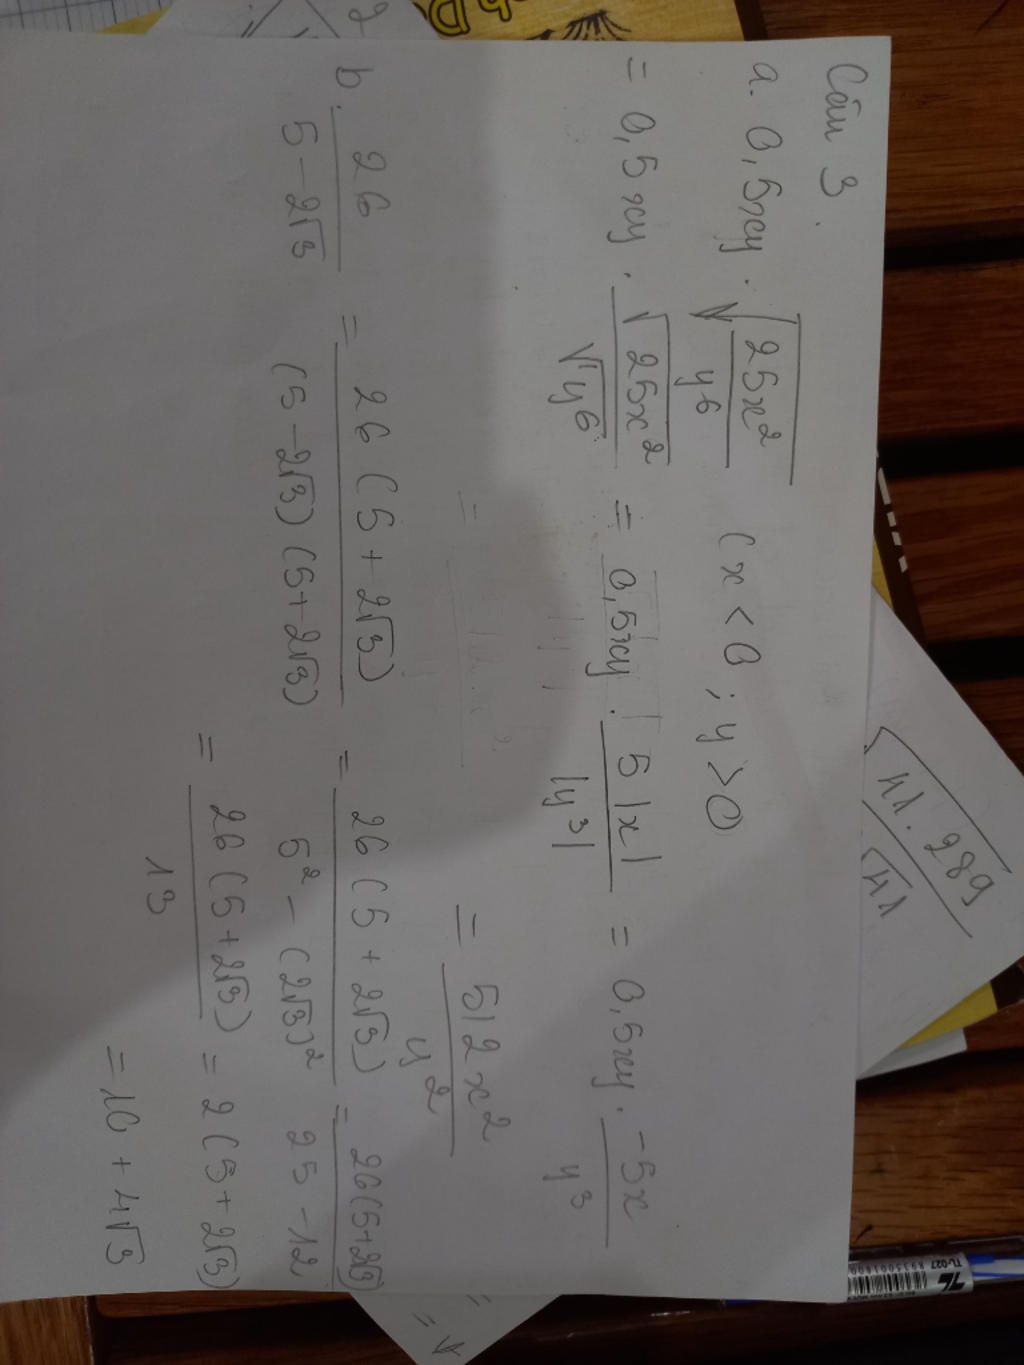 Câu 3.
a. 0,5xy . √(25x²/y⁶) (x < 0 ; y > 0)
= 0,5xy . √(25x²)/√(y⁶) = 0,5xy . 5|x|/|y³| = 0,5xy . -5x/y³
= 5|2x²/y²
b. 26/(5-2√3) = 26(5+2√3)/(5-2√3)(5+2√3) = 26(5+2√3)/5²-(2√3)² = 26(5+2√3)/25-12
= 26(5+2√3)/13 = 2(5+2√3)
= 10 + 4√3
41.289
41
TL-027